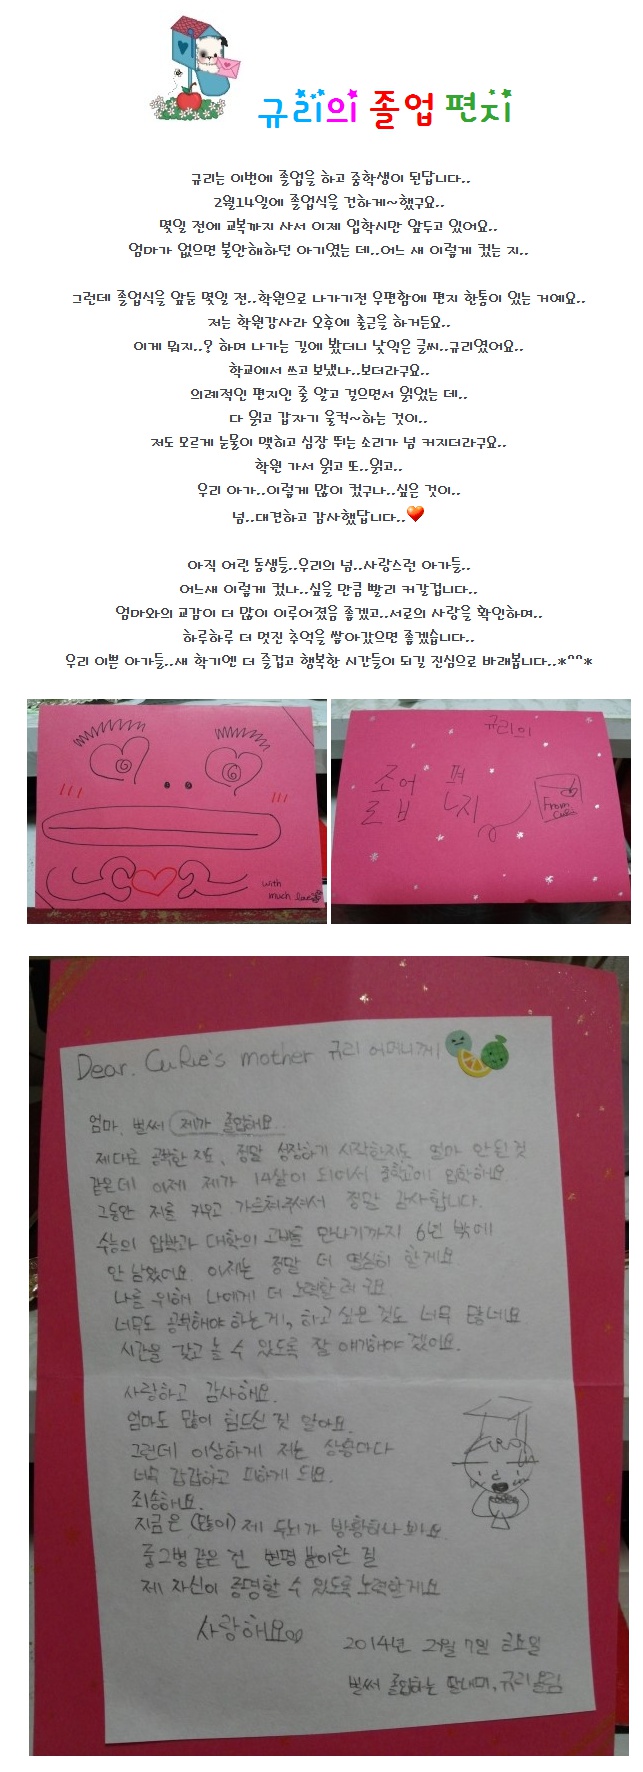 규리의 졸업 편지
규리는 이번에 졸업을 하고 중학생이 된답니다..
2월14일에 졸업식을 건하게~했구요..
몇일 전에 교복까지 사서 이제 입학식만 앞두고 있어요..
엄마가 없으면 불안해하던 아기였는 데..어느 새 이렇게 컸는 지..
그런데 졸업식을 앞둔 몇일 전..학원으로 나가기전 우편함에 편지 한통이 있는 거예요..
저는 학원강사라 오후에 출근을 하거든요..
이게 뭐지..? 하며 나가는 길에 봤더니 낯익은 글씨..규리였어요..
학교에서 쓰고 보냈나..보더라구요..
의례적인 편지인 줄 알고 걸으면서 읽었는 데..
다 읽고 갑자기 울컥~하는 것이..
저도 모르게 눈물이 맺히고 심장 뛰는 소리가 넘 커지더라구요..
학원 가서 읽고 또..읽고..
우리 아가..이렇게 많이 컸구나..싶은 것이..
넘..대견하고 감사했답니다..
아직 어린 동생들..우리의 넘..사랑스런 아가들..
어느새 이렇게 컸나..싶을 만큼 빨리 커갈겁니다..
엄마와의 교감이 더 많이 이루어졌음 좋겠고..서로의 사랑을 확인하며..
하루하루 더 멋진 추억을 쌓아갔으면 좋겠습니다..
우리 이쁜 아가들..새 학기엔 더 즐겁고 행복한 시간들이 되길 진심으로 바래봅니다..*^^*
with
much love
규리의
졸업 편지
From
CuRie
Dear. CuRie's mother 규리 어머니께
엄마, 벌써 제가 졸업해요..
제대로 공부한 지도, 정말 성장하기 시작한지도 얼마 안 된 것
같은데 이제 제가 14살이 되어서 중학교에 입학해요
그동안 저를 키우고 가르쳐주셔서 정말 감사합니다.
수능의 압박과 대학의 고비를 만나기까지 6년 밖에
안 남았어요. 이제는 정말 더 열심히 할게요
나를 위해 나에게 더 노력할려구요
너무도 공부해야 하는 게!, 하고 싶은 것도 너무 많네요
시간을 갖고 놀 수 있도록 잘 얘기해야 겠어요.
사랑하고 감사해요.
엄마도 많이 힘드신 것 알아요.
그런데 이상하게 저는 상황마다
너무 갑갑하고 피하게 되요.
죄송해요.
지금은 (많이) 제 두뇌가 방황하나 봐요.
중2병 같은 건 변명 뿐이란 걸
제 자신이 증명할 수 있도록 노력할게요
사랑해요
2014년 2월 7일 금요일
벌써 졸업하는 딸내미, 규리 올림